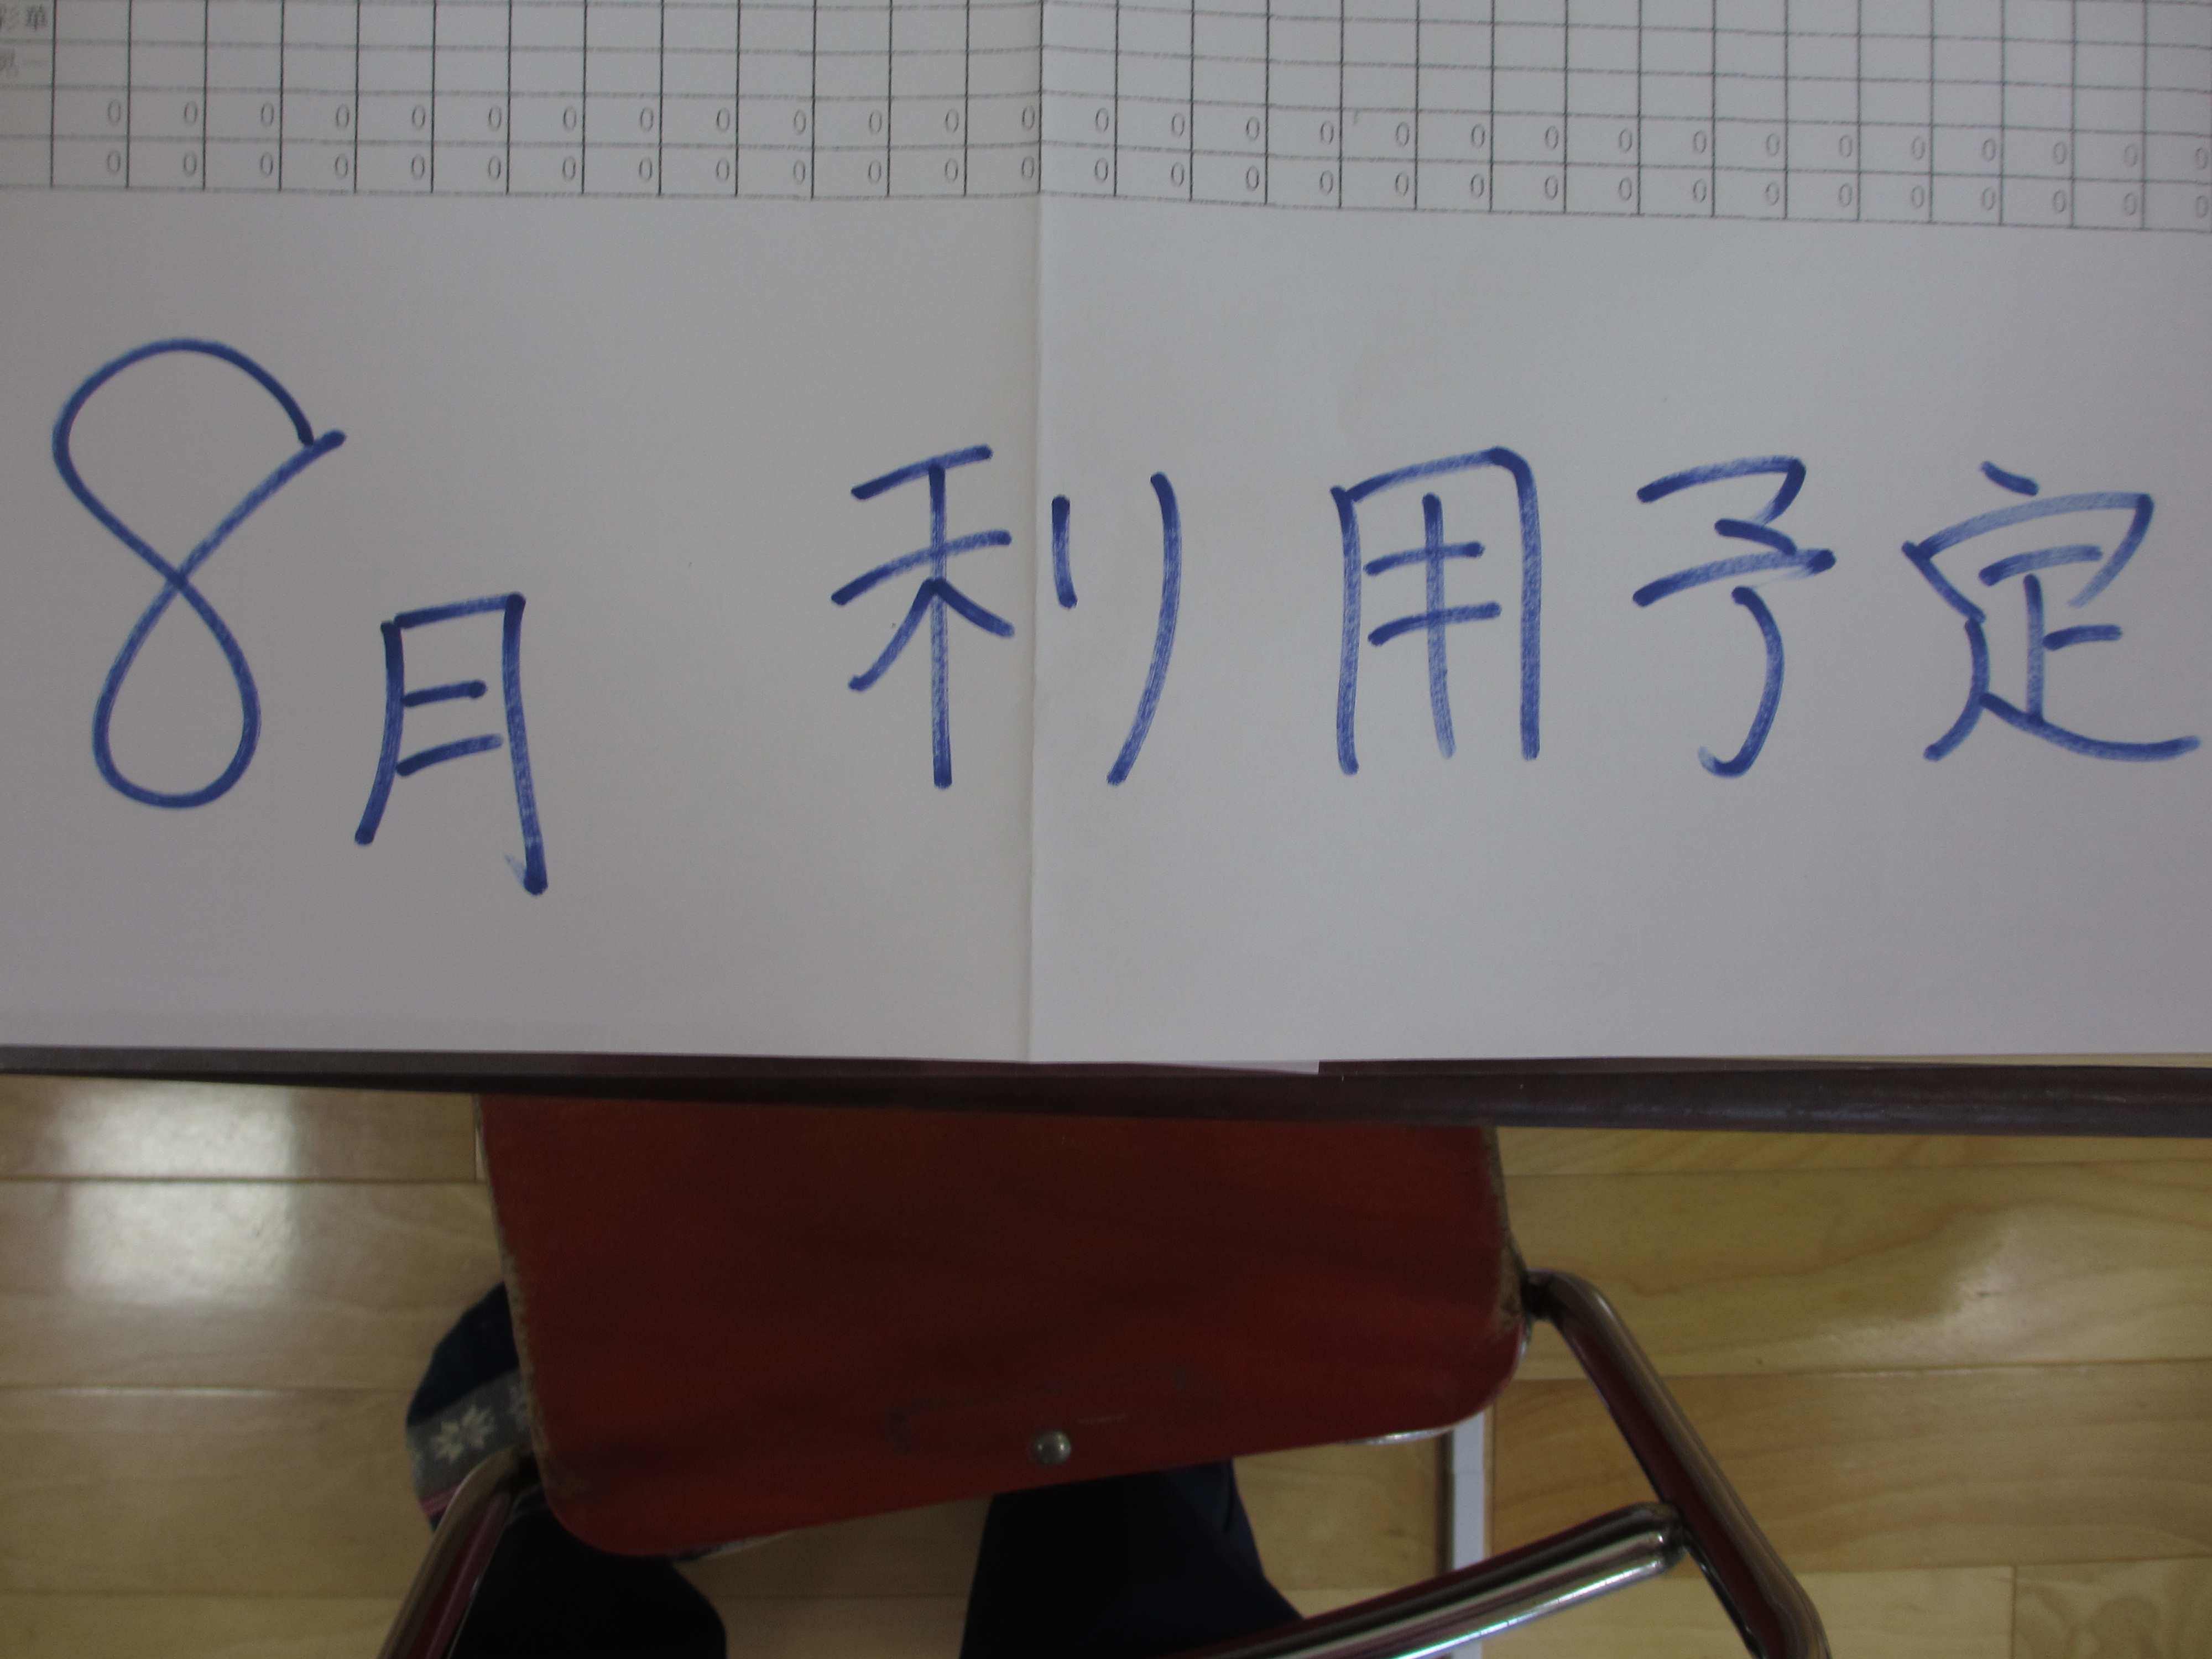 華
0 0 0 0 0 0 0 0 0 0 0 0 0 0 0 0 0 0 0 0 0 0 0 0 0 0 0 0 0
0 0 0 0 0 0 0 0 0 0 0 0 0 0 0 0 0 0 0 0 0 0 0 0 0 0 0 0 0
8月 利用予定